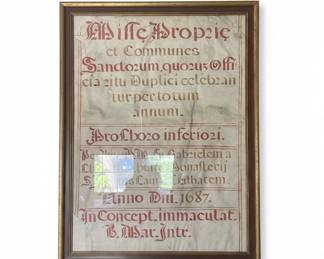 Misse Proprię
et Communes
Sanctorum, quoruȝ Offi
cia ritu Duplici celebran
tur per totum
annum.
Pro Choro inferiori.
Gabrielem a
Monasterij
Abbatem.
Anno Dni. 1687.
In Concept. immaculat.
B. Mar. Intr.